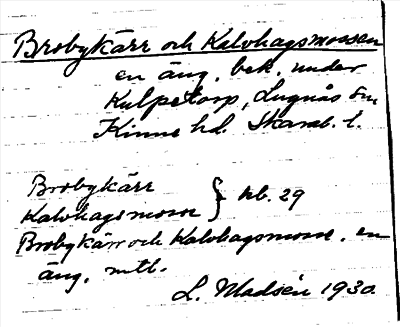 Brobykärr och Kalvhagsmossen
en äng, bek. under
Kulpetorp, Lugnås sn
Kinne hd. Skarab. l.
Brobykärr
Kalvhagsmosse } kb. 29
Brobykärr och Kalvhagsmosse, en
äng, mtl.
L. Madsén 1930